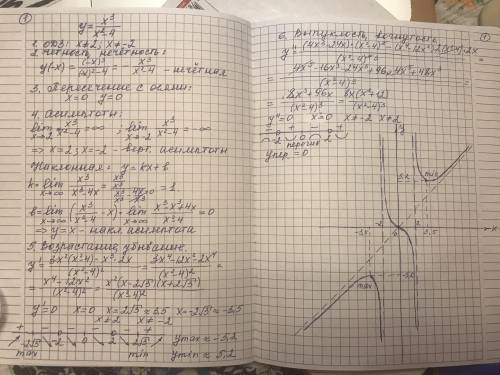 ①
y = x³/(x²-4)
1. ОДЗ: x≠2; x≠-2
2. Четность, нечётность:
y(-x) = (-x)³/((-x)²-4) = - x³/(x²-4) - нечётная
3. Пересечение с осями:
x=0 y=0
4. Асимптоты:
lim x→2 x³/(x²-4) = ∞ ; lim x→-2 x³/(x²-4) = -∞
⇒ x=2; x=-2 - верт. асимптоты
Наклонная: y=kx+b
k = lim x→∞ x³/(x³-4x) = = 1
b = lim x→∞ (x³/(x²-4) - x) = lim x→∞ (x³-x³+4x)/(x²-4) = 0
⇒ y=x - накл. асимптота
5. Возрастание, убывание.
y' = (3x²(x²-4)-x³·2x)/(x²-4)² = (3x⁴-12x²-2x⁴)/(x²-4)² =
= (x⁴-12x²)/(x²-4)² = x²(x-2√3)(x+2√3)/(x²-4)²
y'=0 x=0 x=2√3≈3,5 x=-2√3≈-3,5
x≠2 x≠-2
+ - - - - +
-2√3 -2 0 2 2√3
max min
ymax ≈ -5,2
ymin ≈ 5,2
①
6. Выпуклость, вогнутость.
y'' = (4x³-24x)(x²-4)²-(x⁴-12x²)·2(x²-4)·2x =
= (4x⁵-16x³-24x³+96x-4x⁵+48x³)/(x²-4)³ =
= (8x³+96x)/(x²-4)³ = 8x(x²+12)/(x²-4)³
y''=0 x=0 x≠-2 x≠2
- + - +
-2 0 2
перегиб
yпер. = 0
y
min
5,2
-3,5 -2 0 2 3,5 x
-5,2
max